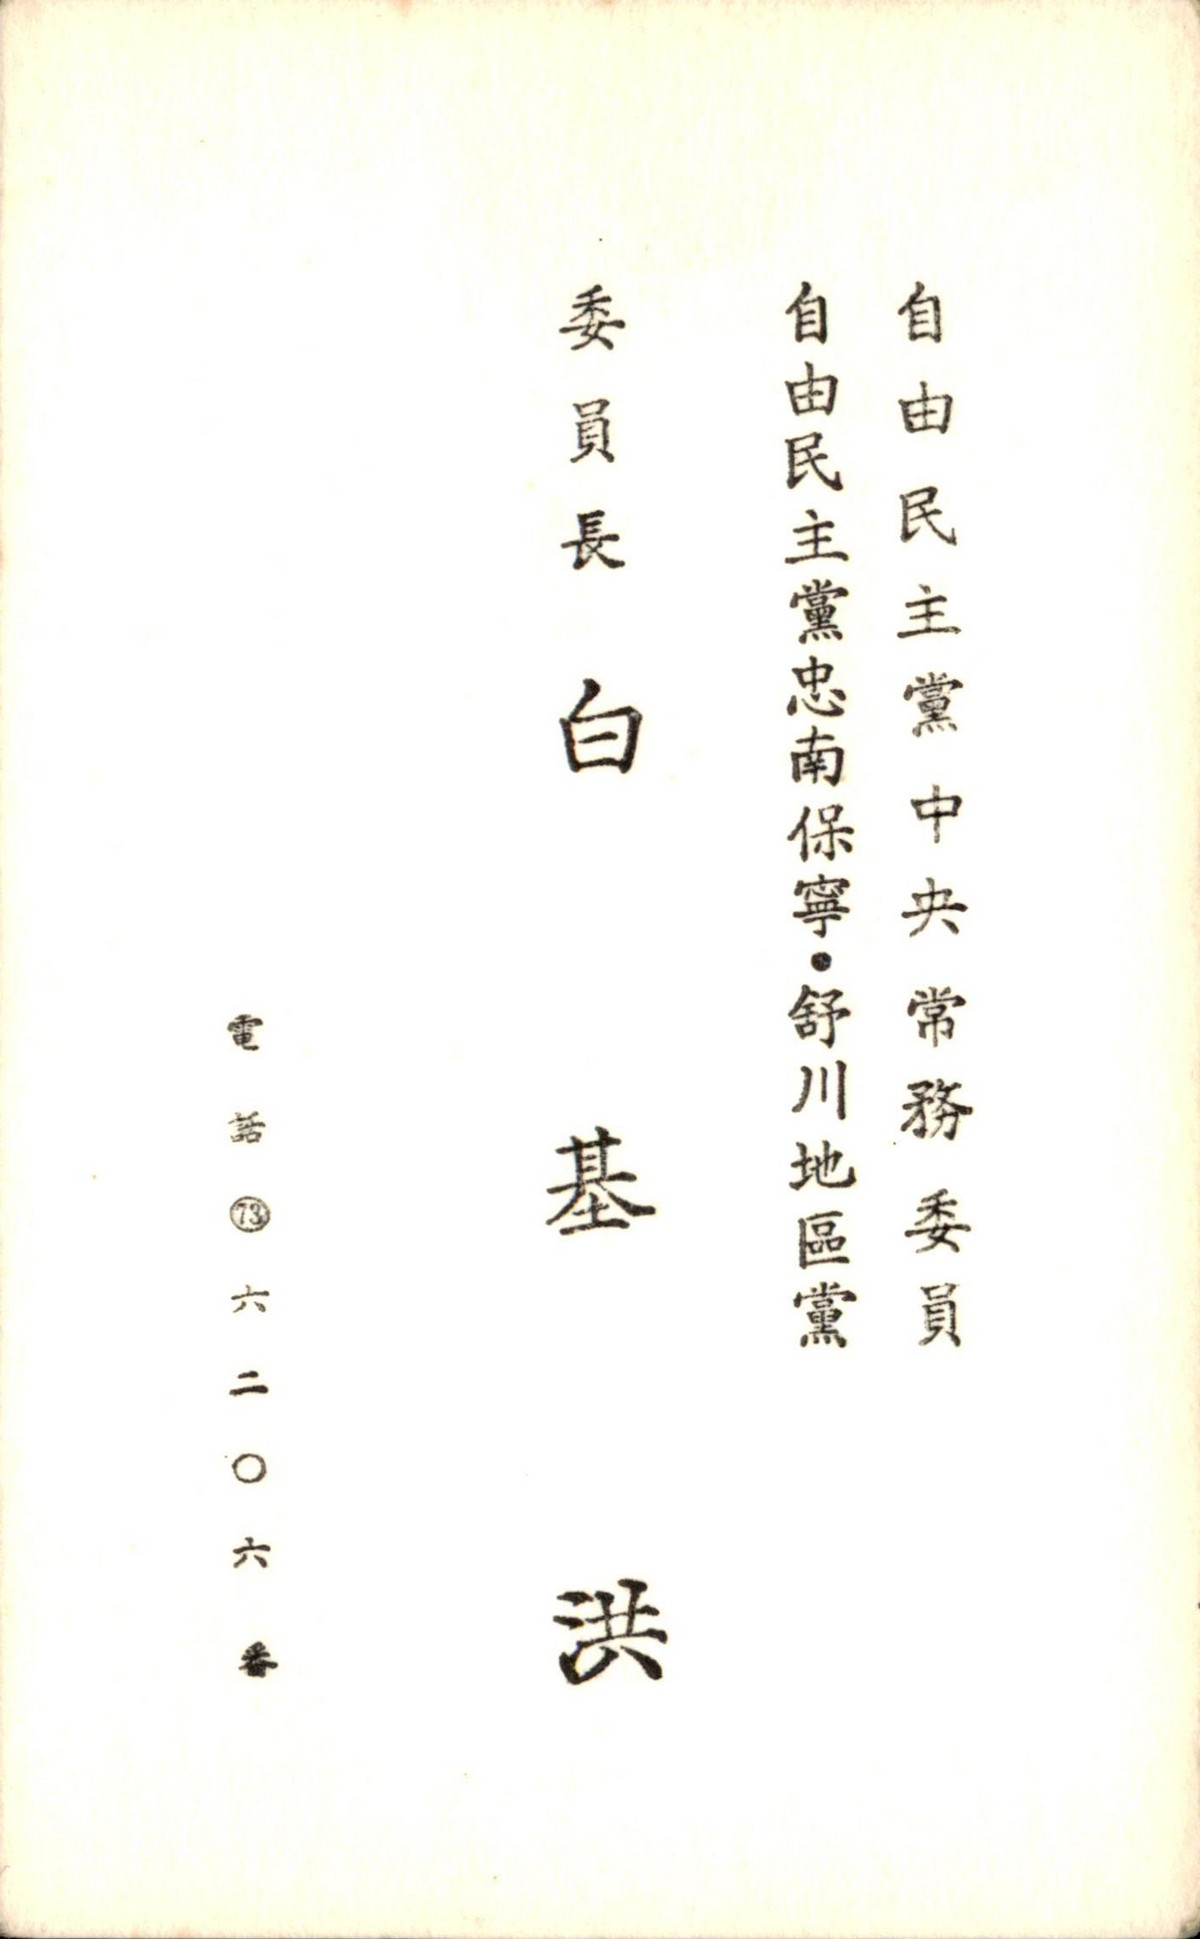 自由民主黨中央常務委員
自由民主黨忠南保寧•舒川地區黨
委員長 白基洪
電話㉓六二〇六番